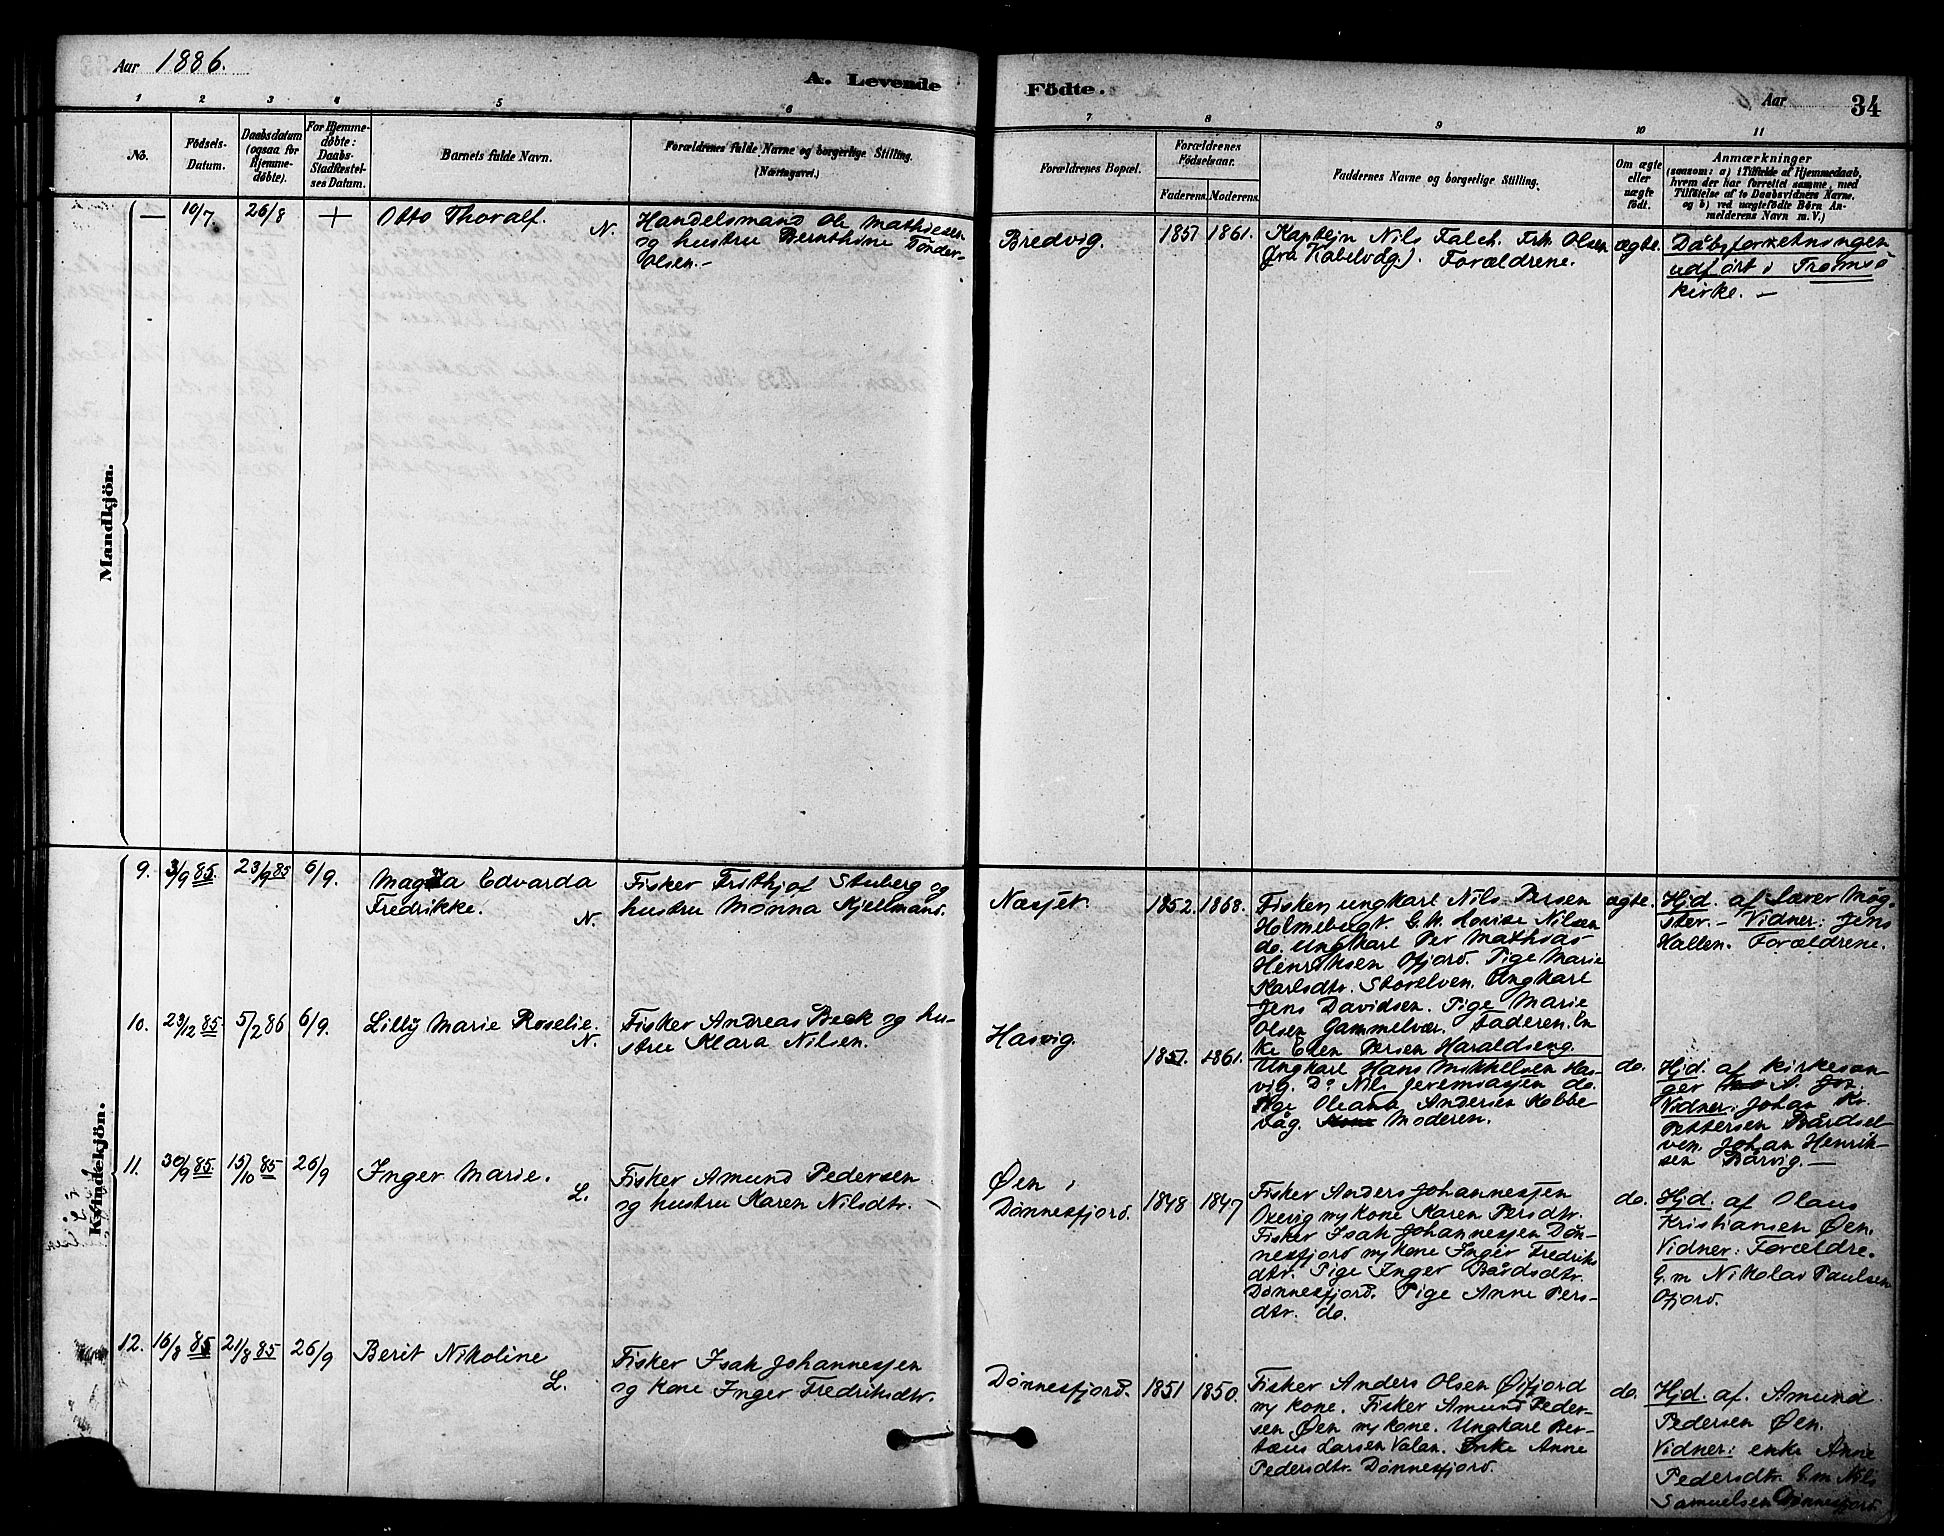 Aar 1886.
A. Levende
Födte.
Aar
34
1 2 3 4 5 6 7 8 9 10 11
No.
Födsels-
Datum.
Daabsdatum
(ogsaa for
Hjemme-
döbte).
For Hjemme-
döbte:
Daabs-
Stadfæstel-
ses Datum.
Barnets fulde Navn.
Forældrenes fulde Navne og borgerlige Stilling.
(Næringsvei.)
Forældrenes Bopæl.
Forældrenes
Födselsaar.
Faderens. Moderens.
Faddernes Navne og borgerlige Stilling.
Om ægte
eller
uægte
födt.
Anmærkninger
(saasom: a) i Tilfælde af Hjemmedaab,
hvem der har forrettet samme, med
Tilföielse af to Daabsvidners Navne,
og b) ved uægtefödte Börn An-
melderens Navn m. V.)
Mandkjön.
— 10/7 26/8 + Otto Thoralf. N.
Handelsmand Ole Mathiesen
og hustru Bernthine Tønder-
Olsen.—
Bredvig. 1857 1861.
Kaptejn Nils Falch. Frk. Olsen
(fra Kabelvåg). Forældrene.
ægte.
Dåbsforretningen
udført i Tromsø
kirke. —
Kvindekjön.
9. 3/9 85. 23/9 85 6/9. Magda Edvarda
Fredrikke. N.
Fisker Frithjof Stuberg og
hustru Monna Kjellmand.
Næsjet. 1852. 1868.
Fisker ungkarl Nils Persen
Holmebugt. G. K. Lovise Nilsen
do. Ungkarl Per Mathias
Henriksen Ofjord. Pige Marie
Karlsdtr. Storelven. Ungkarl
Jens Davidsen. Pige Marie
Olsen Gammelvær. Faderen. En
ke Elen Persen Haraldseng.
ægte.
Hjd. af Lærer Møg-
ster. — Vidner: Jens
Hallen. Forældrene.
10. 23/12 85 5/2 86 6/9. Lilly Marie Roselie. N.
Fisker Andreas Beck og hu-
stru Klara Nilsen.
Hasvig. 1851. 1861.
Ungkarl Hans Mikkelsen Has-
vig. Do Nils Jeremiassen do.
Pige Oleana Andersen Kobbe-
våg. Moderen.
do.
Hjd. af kirkesan-
ger A.
Vidner: Johan Kr.
Pettersen Bårdsel-
ven. Johan Henrik-
sen Bårvig. —
11. 30/9 85. 15/10 85 26/9 Inger Marie. L.
Fisker Amund Pedersen
og hustru Karen Nilsdtr. —
Øen i
Dønnesfjord. 1848 1847
Fisker Anders Johannessen
Oxevig m/ kone Karen Persdtr.
Fisker Isak Johannessen Døn-
nesfjord m/ kone Inger Fredriks
dtr. Pige Inger Bårdsdtr.
Dønnesfjord. Pige Anne Pers-
dtr. do.
do.
Hjd. af Olaus
Kristiansen Øen.
Vidner: Forældre.
G. m Nikolai Paulsen
Ofjord.
12. 16/8 85 21/8 85 26/9 Berit Nikoline L.
Fisker Isak Johannessen
og kone Inger Fredriksdtr.
Dønnesfjord. 1851 1850.
Fisker Anders Olsen Øifjord
m/ kone. Fisker Amund Peder-
sen Øen m/ kone. Ungkarl Ber-
taus Larsen Valan. Enke Anne
Pedersdtr. Dønnesfjord.
do.
Hjd. af. Amund
Pedersen Øen.
Vidner: enke Anne
Pedersdtr G. m Nils
Samuelsen Dønnesfjord.